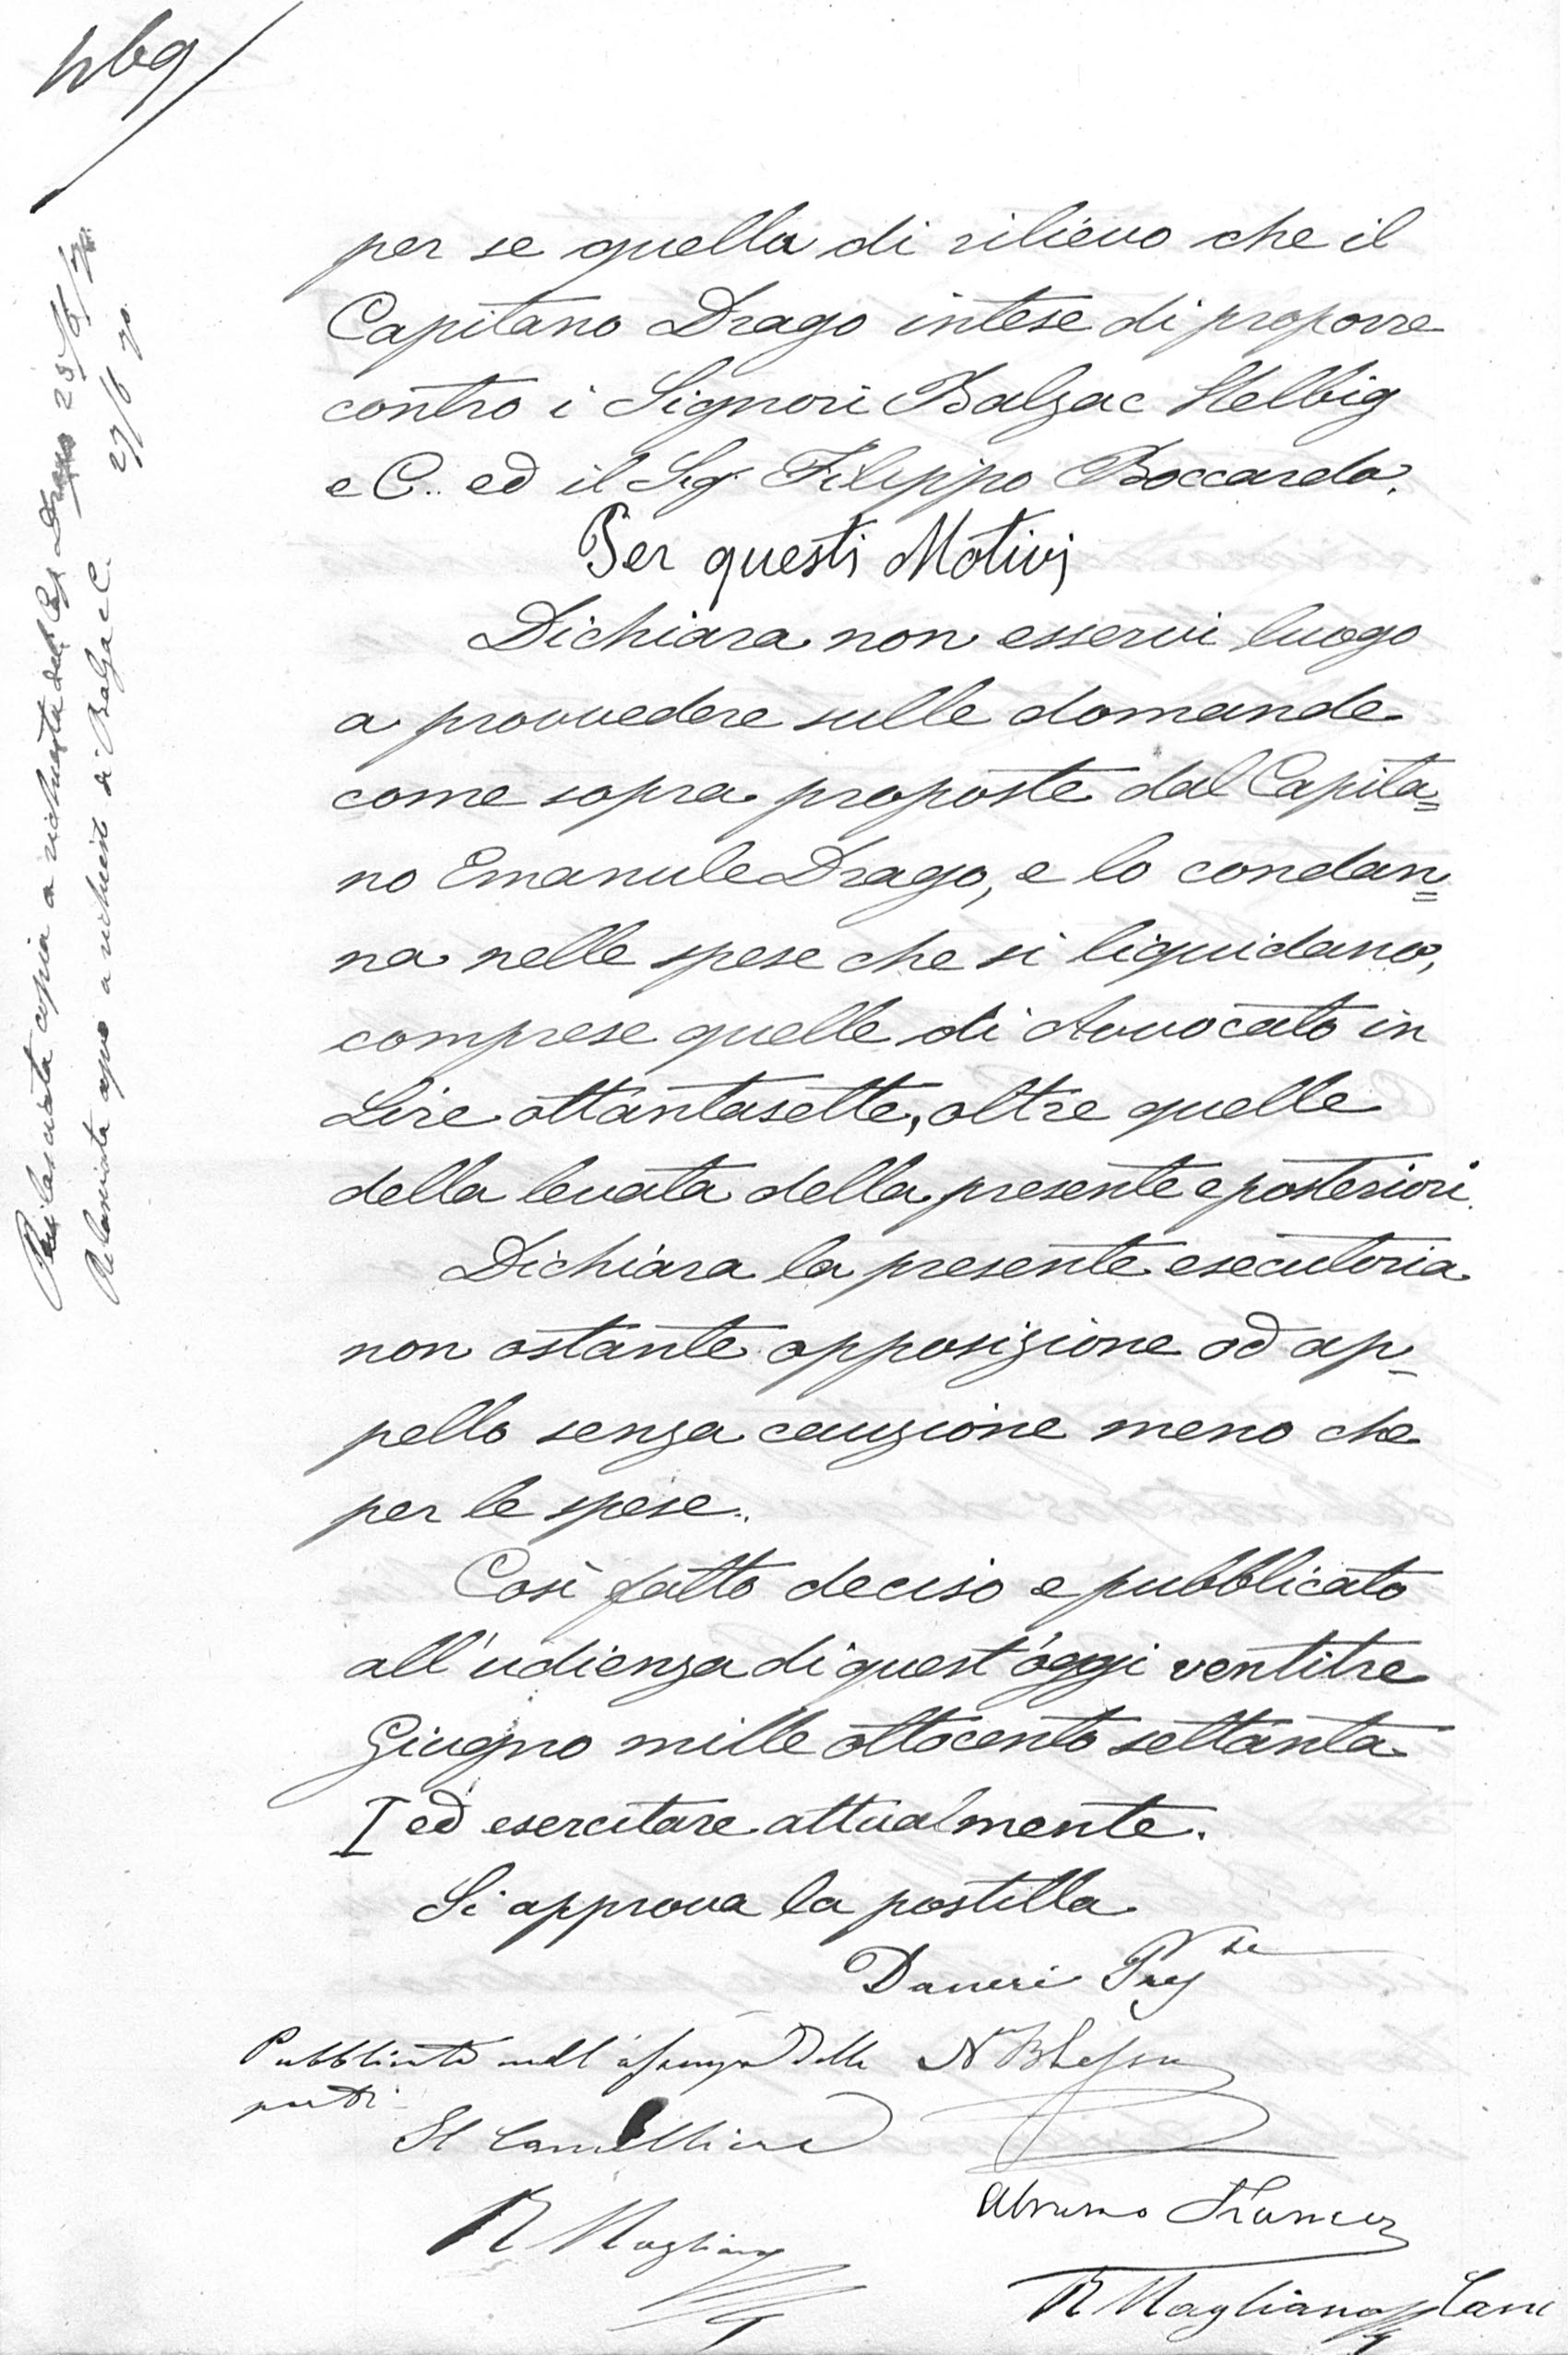 per se quella di rilievo che il
Capitano Drago intese di proporre
contro i Signori Balzac Helbig
e C.. ed il Sig.r Filippo Boccardo.
Per questi Motivi
Dichiara non esservi luogo
a provvedere sulle domande
come sopra proposte dal Capita=
no Emanule Drago, e lo condan=
na nelle spese che si liquidano,
comprese quelle di Avvocato in
Lire ottantasette, oltre quelle
della levata della presente e posteriori.
Dichiara la presente esecutoria
non ostante opposizione od ap-
pello senza cauzione meno che
per le spese..
Così fatto deciso e pubblicato
all'udienza di quest'oggi ventitre
Giugno mille ottocento settanta
I ed esercitare attualmente.
Si approva la postilla
Daneri
Pubblicato nell' delle
parti
Il Cancelliere
R Magliano
R Magliano Canc
Rilasciata copia a richiesta del Cap Drago 25/6/70
Rilasciata a richiesta di Balzac e C. 27/6 70